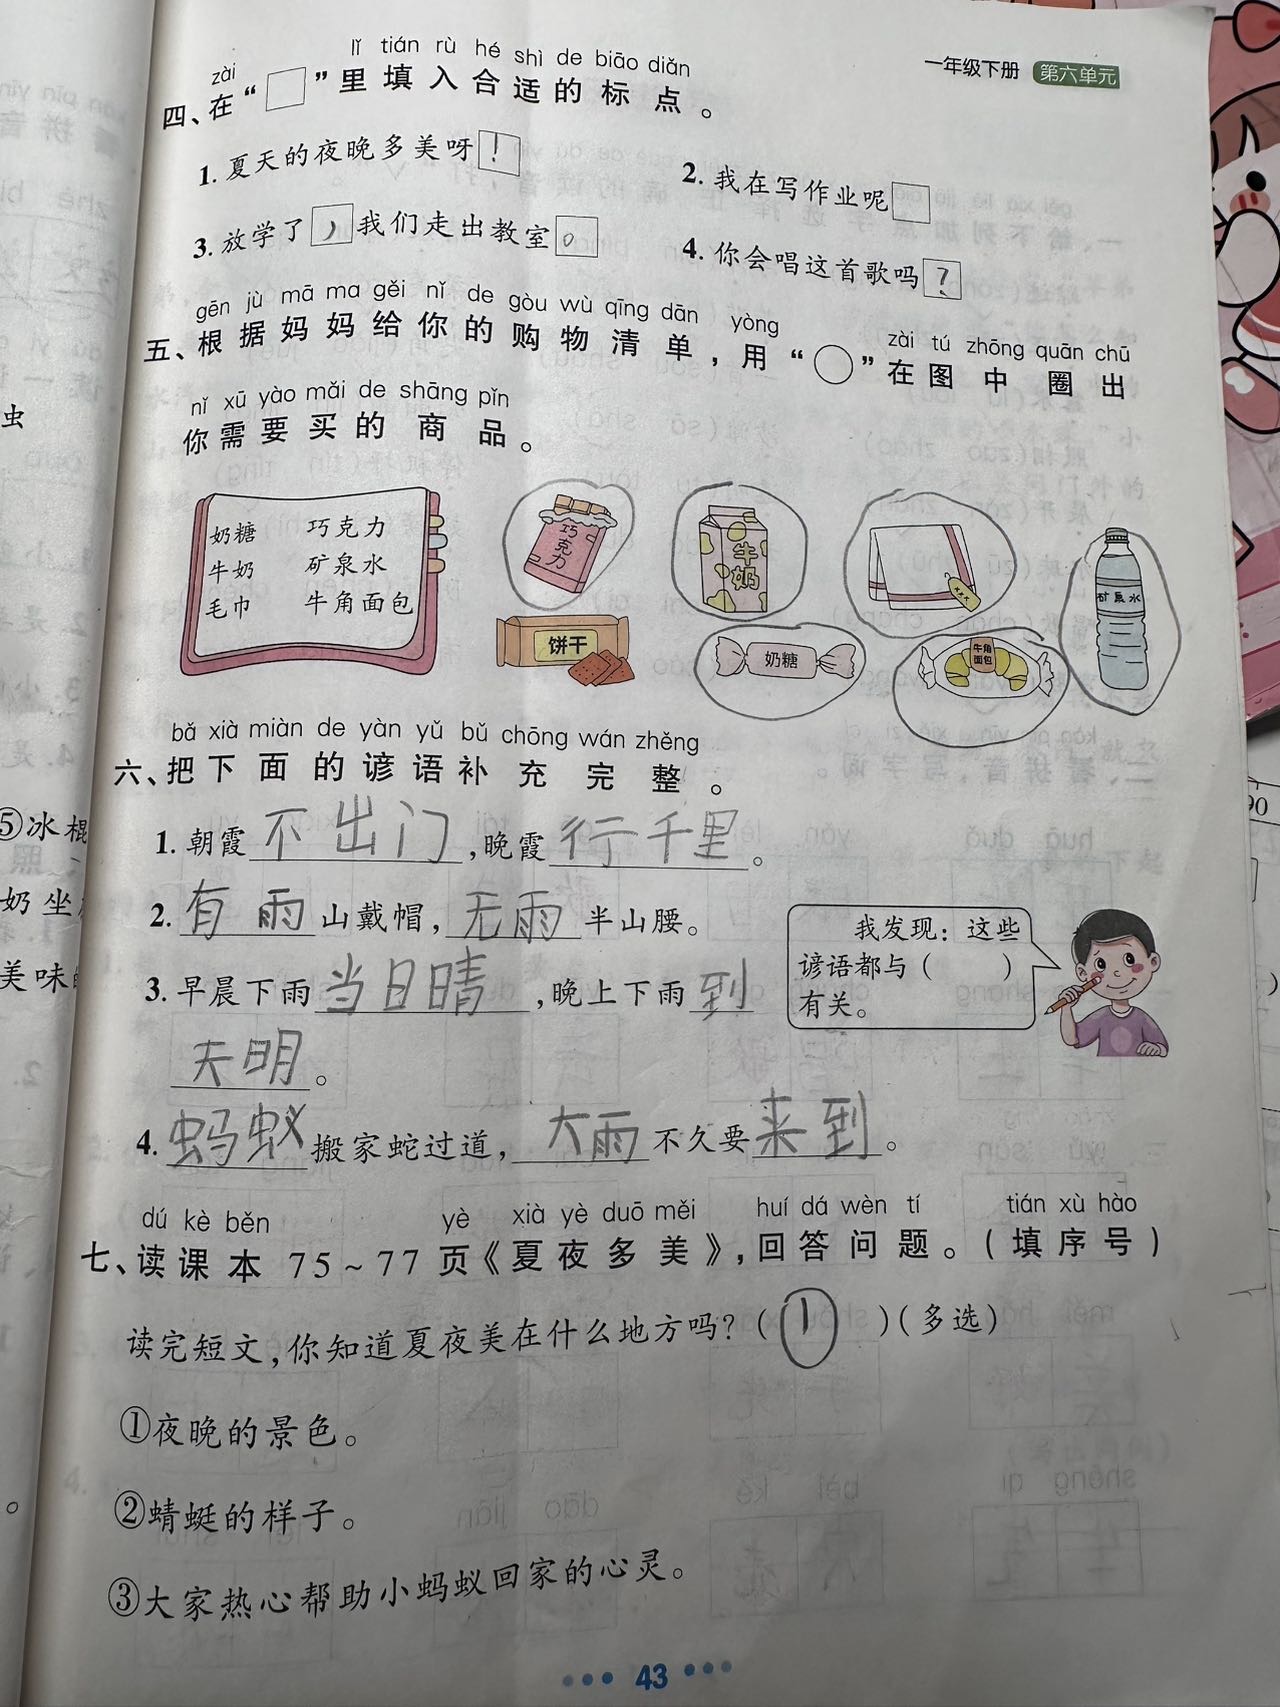 一年级下册 第六单元
zài lǐ tián rù hé shì de biāo diǎn
四、在“□”里填入合适的标点。
1.夏天的夜晚多美呀！
2.我在写作业呢□
3.放学了，我们走出教室。
4.你会唱这首歌吗？
gēn jù mā ma gěi nǐ de gòu wù qīng dān yòng zài tú zhōng quān chū
五、根据妈妈给你的购物清单，用“○”在图中圈出
nǐ xū yào mǎi de shāng pǐn
你需要买的商品。
奶糖 巧克力
牛奶 矿泉水
毛巾 牛角面包
巧克力
牛奶
xxx
矿泉水
饼干
奶糖
牛角面包
bǎ xià miàn de yàn yǔ bǔ chōng wán zhěng
六、把下面的谚语补充完整。
1.朝霞不出门，晚霞行千里。
2.有雨山戴帽，无雨半山腰。
3.早晨下雨当日晴，晚上下雨到
天明。
我发现：这些
谚语都与（ ）
有关。
4.蚂蚁搬家蛇过道，大雨不久要来到。
dú kè běn yè xià yè duō měi huí dá wèn tí tián xù hào
七、读课本75~77页《夏夜多美》，回答问题。（填序号）
读完短文，你知道夏夜美在什么地方吗？（①）（多选）
①夜晚的景色。
②蜻蜓的样子。
③大家热心帮助小蚂蚁回家的心灵。
43
虫
⑤冰棍
奶坐
美味